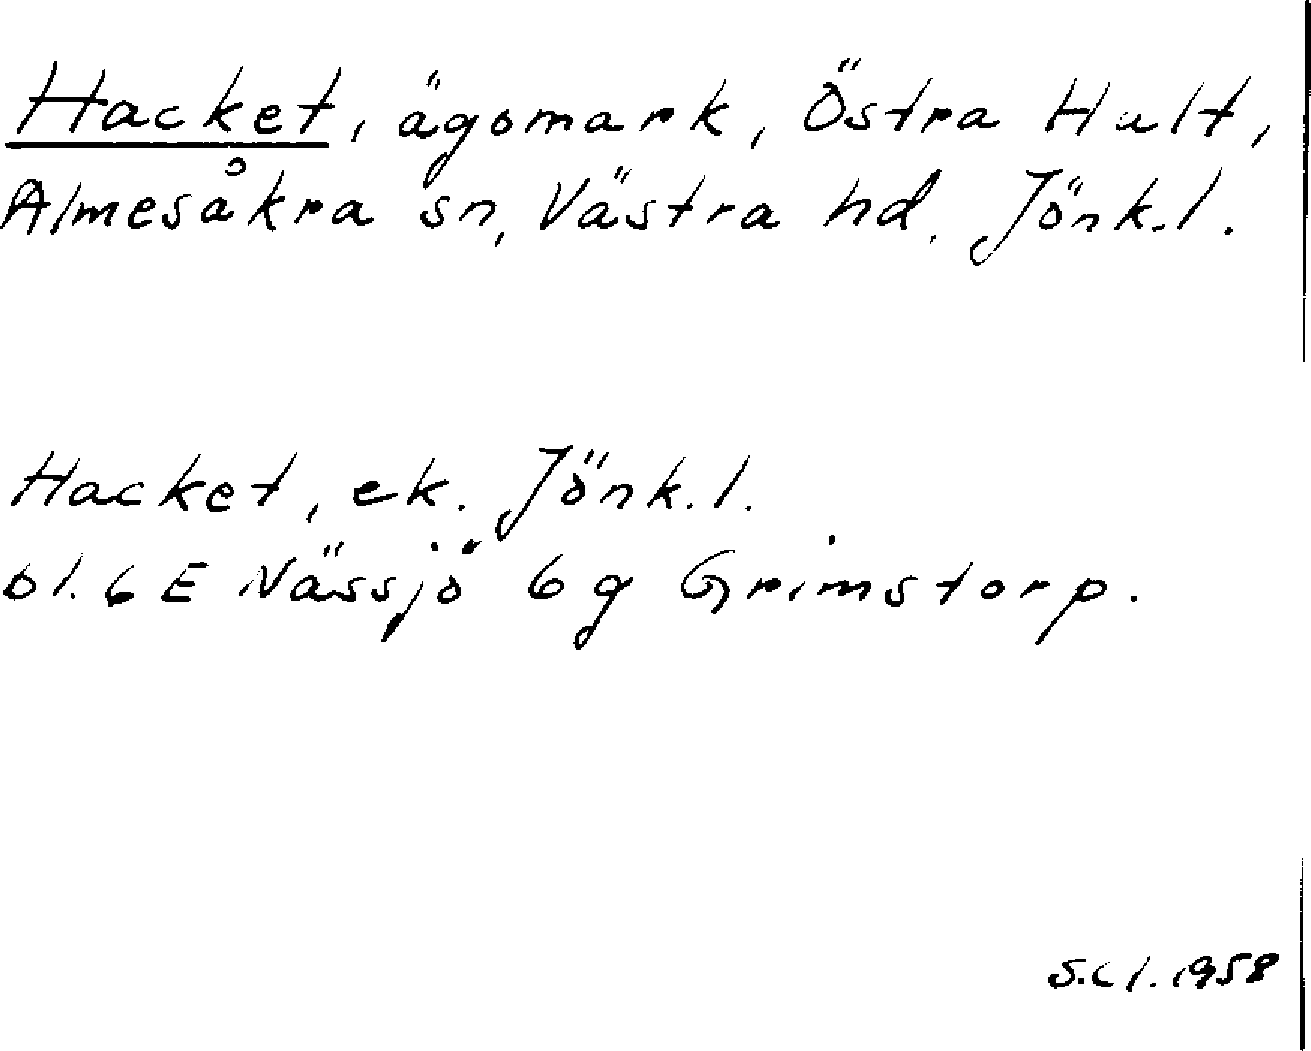 Hacket, ägomark, Östra Hult,
Almesåkra sn, Västra hd. Jönk.l.
Hacket, ek. Jönk.l.
bl. 6 E Nässjö 6g Grimstorp.
1958